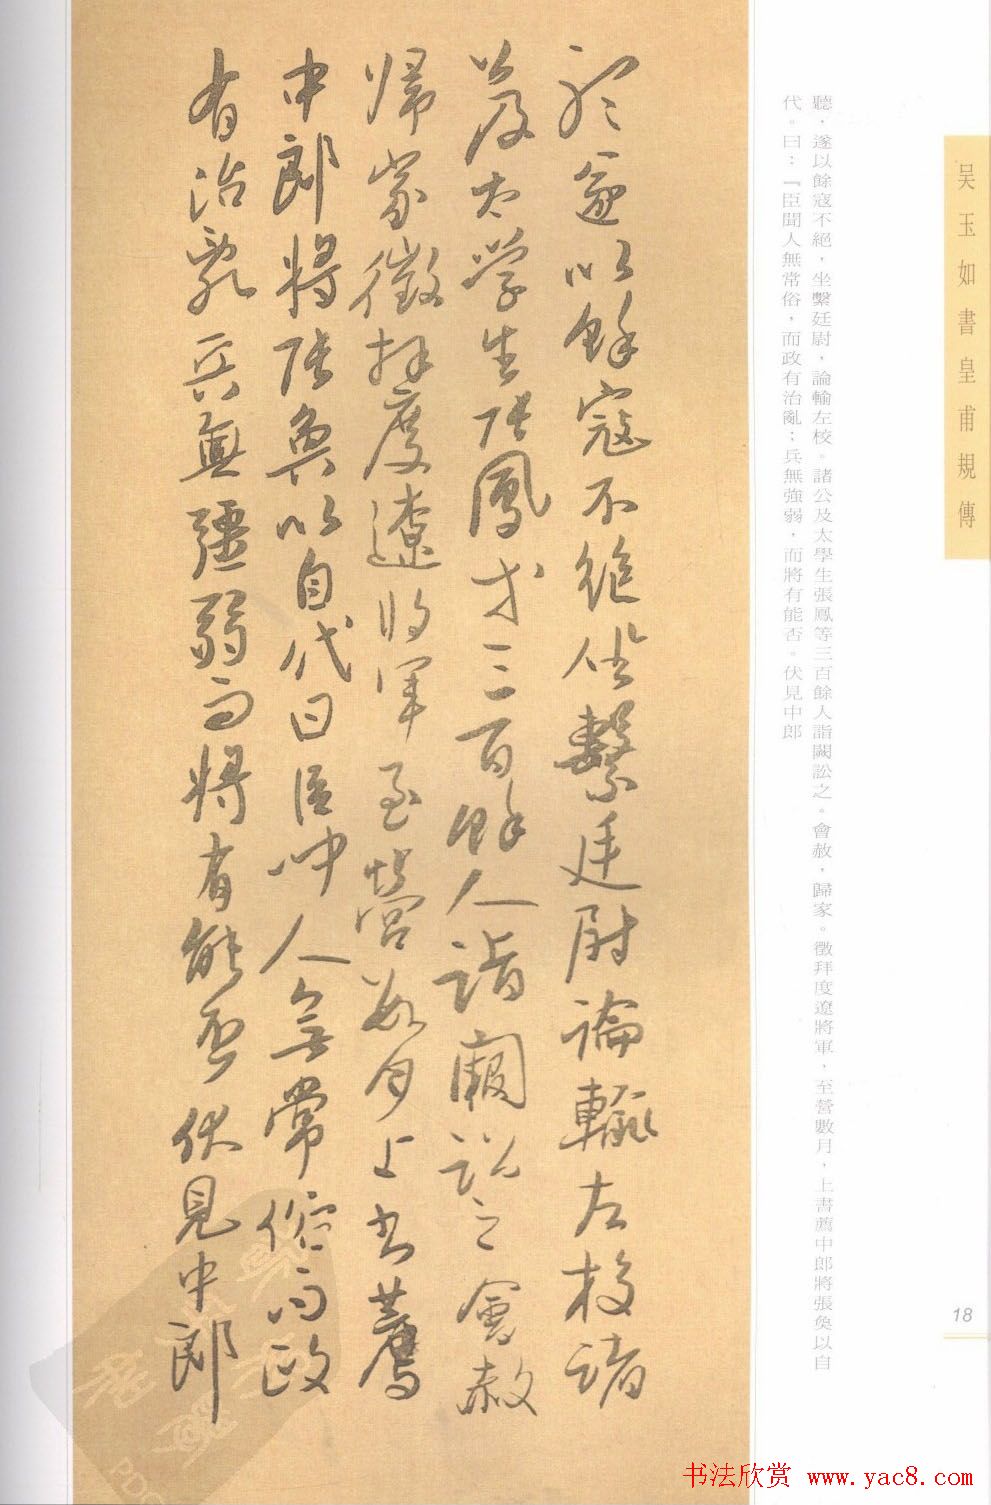 吴玉如書皇甫規傳
18
聽，遂以餘寇不絕，坐繫廷尉，論輸左校。諸公及太學生張鳳等三百餘人詣闕訟之。會赦，歸家。徵拜度遼將軍，至營數月，上書薦中郎將張奐以自
代。曰：『臣聞人無常俗，而政有治亂；兵無強弱，而將有能否。伏見中郎
聽遂以餘寇不絕坐繫廷尉論輸左校諸
公及太學生張鳳等三百餘人詣闕訟之會赦
歸家徵拜度遼將軍至營數月上書薦
中郎將張奐以自代曰臣聞人無常俗而政
有治亂兵無彊弱而將有能否伏見中郎
书法欣赏 www.yac8.com